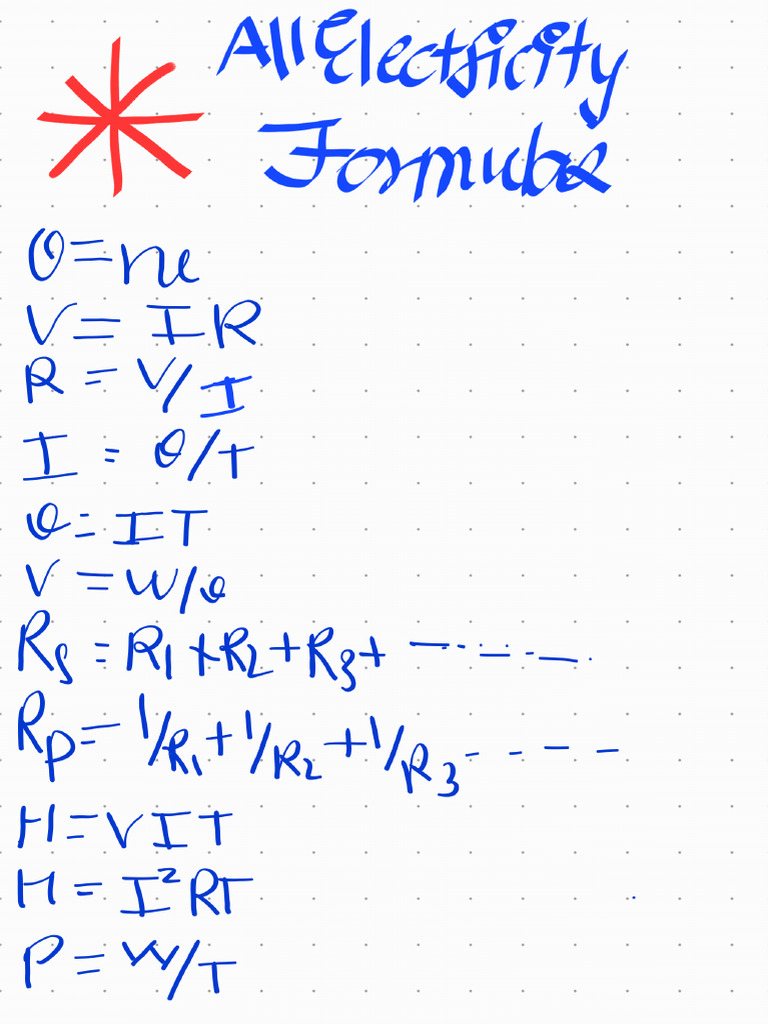 All Electricity
Formulas
Q=ne
V= IR
R = V/I
I = Q/T
Q= IT
V = W/Q
Rs = R1+R2+R3+ -------
Rp= 1/R1+1/R2+1/R3- - - -
H=VIT
H= I²RT
P= W/T